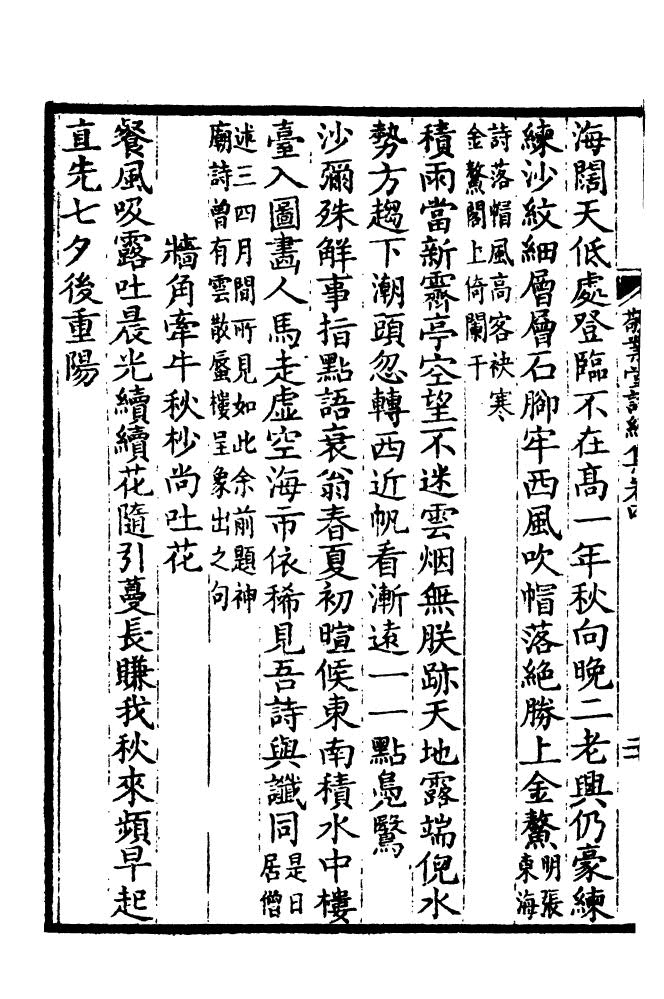 敬業堂詩續集卷四
海闊天低處登臨不在髙一年秋向晚二老興仍豪練
練沙紋細層層石腳牢西風吹帽落絶勝上金鰲明張
東海
詩落帽風高客袂寒
金鰲閣上倚闌干
積雨當新霽亭空望不迷雲烟無朕跡天地露端倪水
勢方趨下潮頭忽轉西近帆看漸遠一一點鳧鷖
沙彌殊解事指點語衰翁春夏初暄候東南積水中樓
臺入圖畫人馬走虛空海市依稀見吾詩與讖同是日
居僧
述三四月間所見如此余前題神
廟詩曾有雲散蜃樓呈象出之句
牆角牽牛秋杪尚吐花
餐風吸露吐晨光續續花隨引蔓長賺我秋來頻早起
直先七夕後重陽